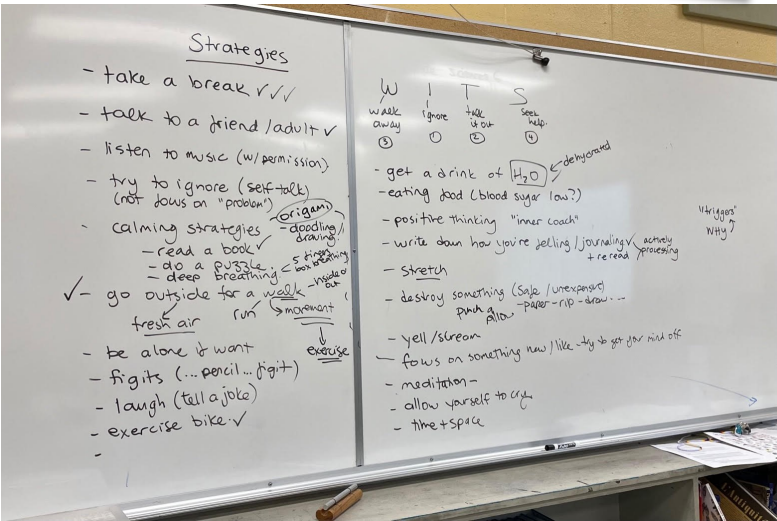 Strategies
- take a break ✓✓✓
- talk to a friend/adult ✓
- listen to music (w/permission)
- try to ignore (self-talk)
(not focus on "problem")
- calming strategies
origami
- doodling/
drawing
- read a book ✓
- do a puzzle
- deep breathing
5 finger
box breathing
✓ - go outside for a walk - inside or
out
run
movement
fresh air
exercise
- be alone if want
- figits (...pencil... figit)
- laugh (tell a joke)
- exercise bike ✓
-
W I T S
walk away
ignore
talk it out
seek help.
③ ① ② ④
- get a drink of H2O
dehydrated
- eating food (blood sugar low?)
- positive thinking "inner coach"
- write down how you're felling/journaling ✓
+ re read
actively
processing
- stretch
- destroy something (safe/unexpensive)
punch a
pillow
- paper - rip - draw ...
- yell/scream
- focus on something new/like - try to get your mind off
- meditation -
- allow yourself to cry
- time + space
"triggers"
WHY?
L'Antiquit